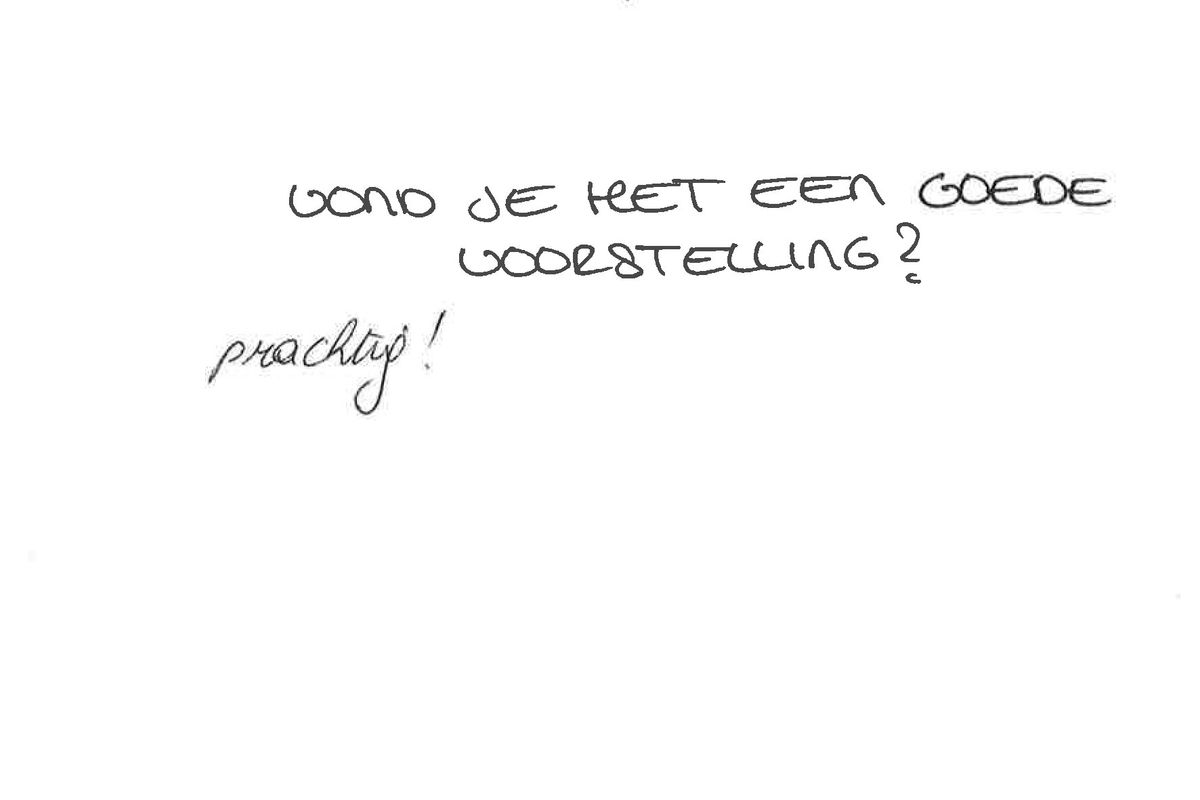 VOND JE HET EEN GOEDE
VOORSTELLING?
prachtig!